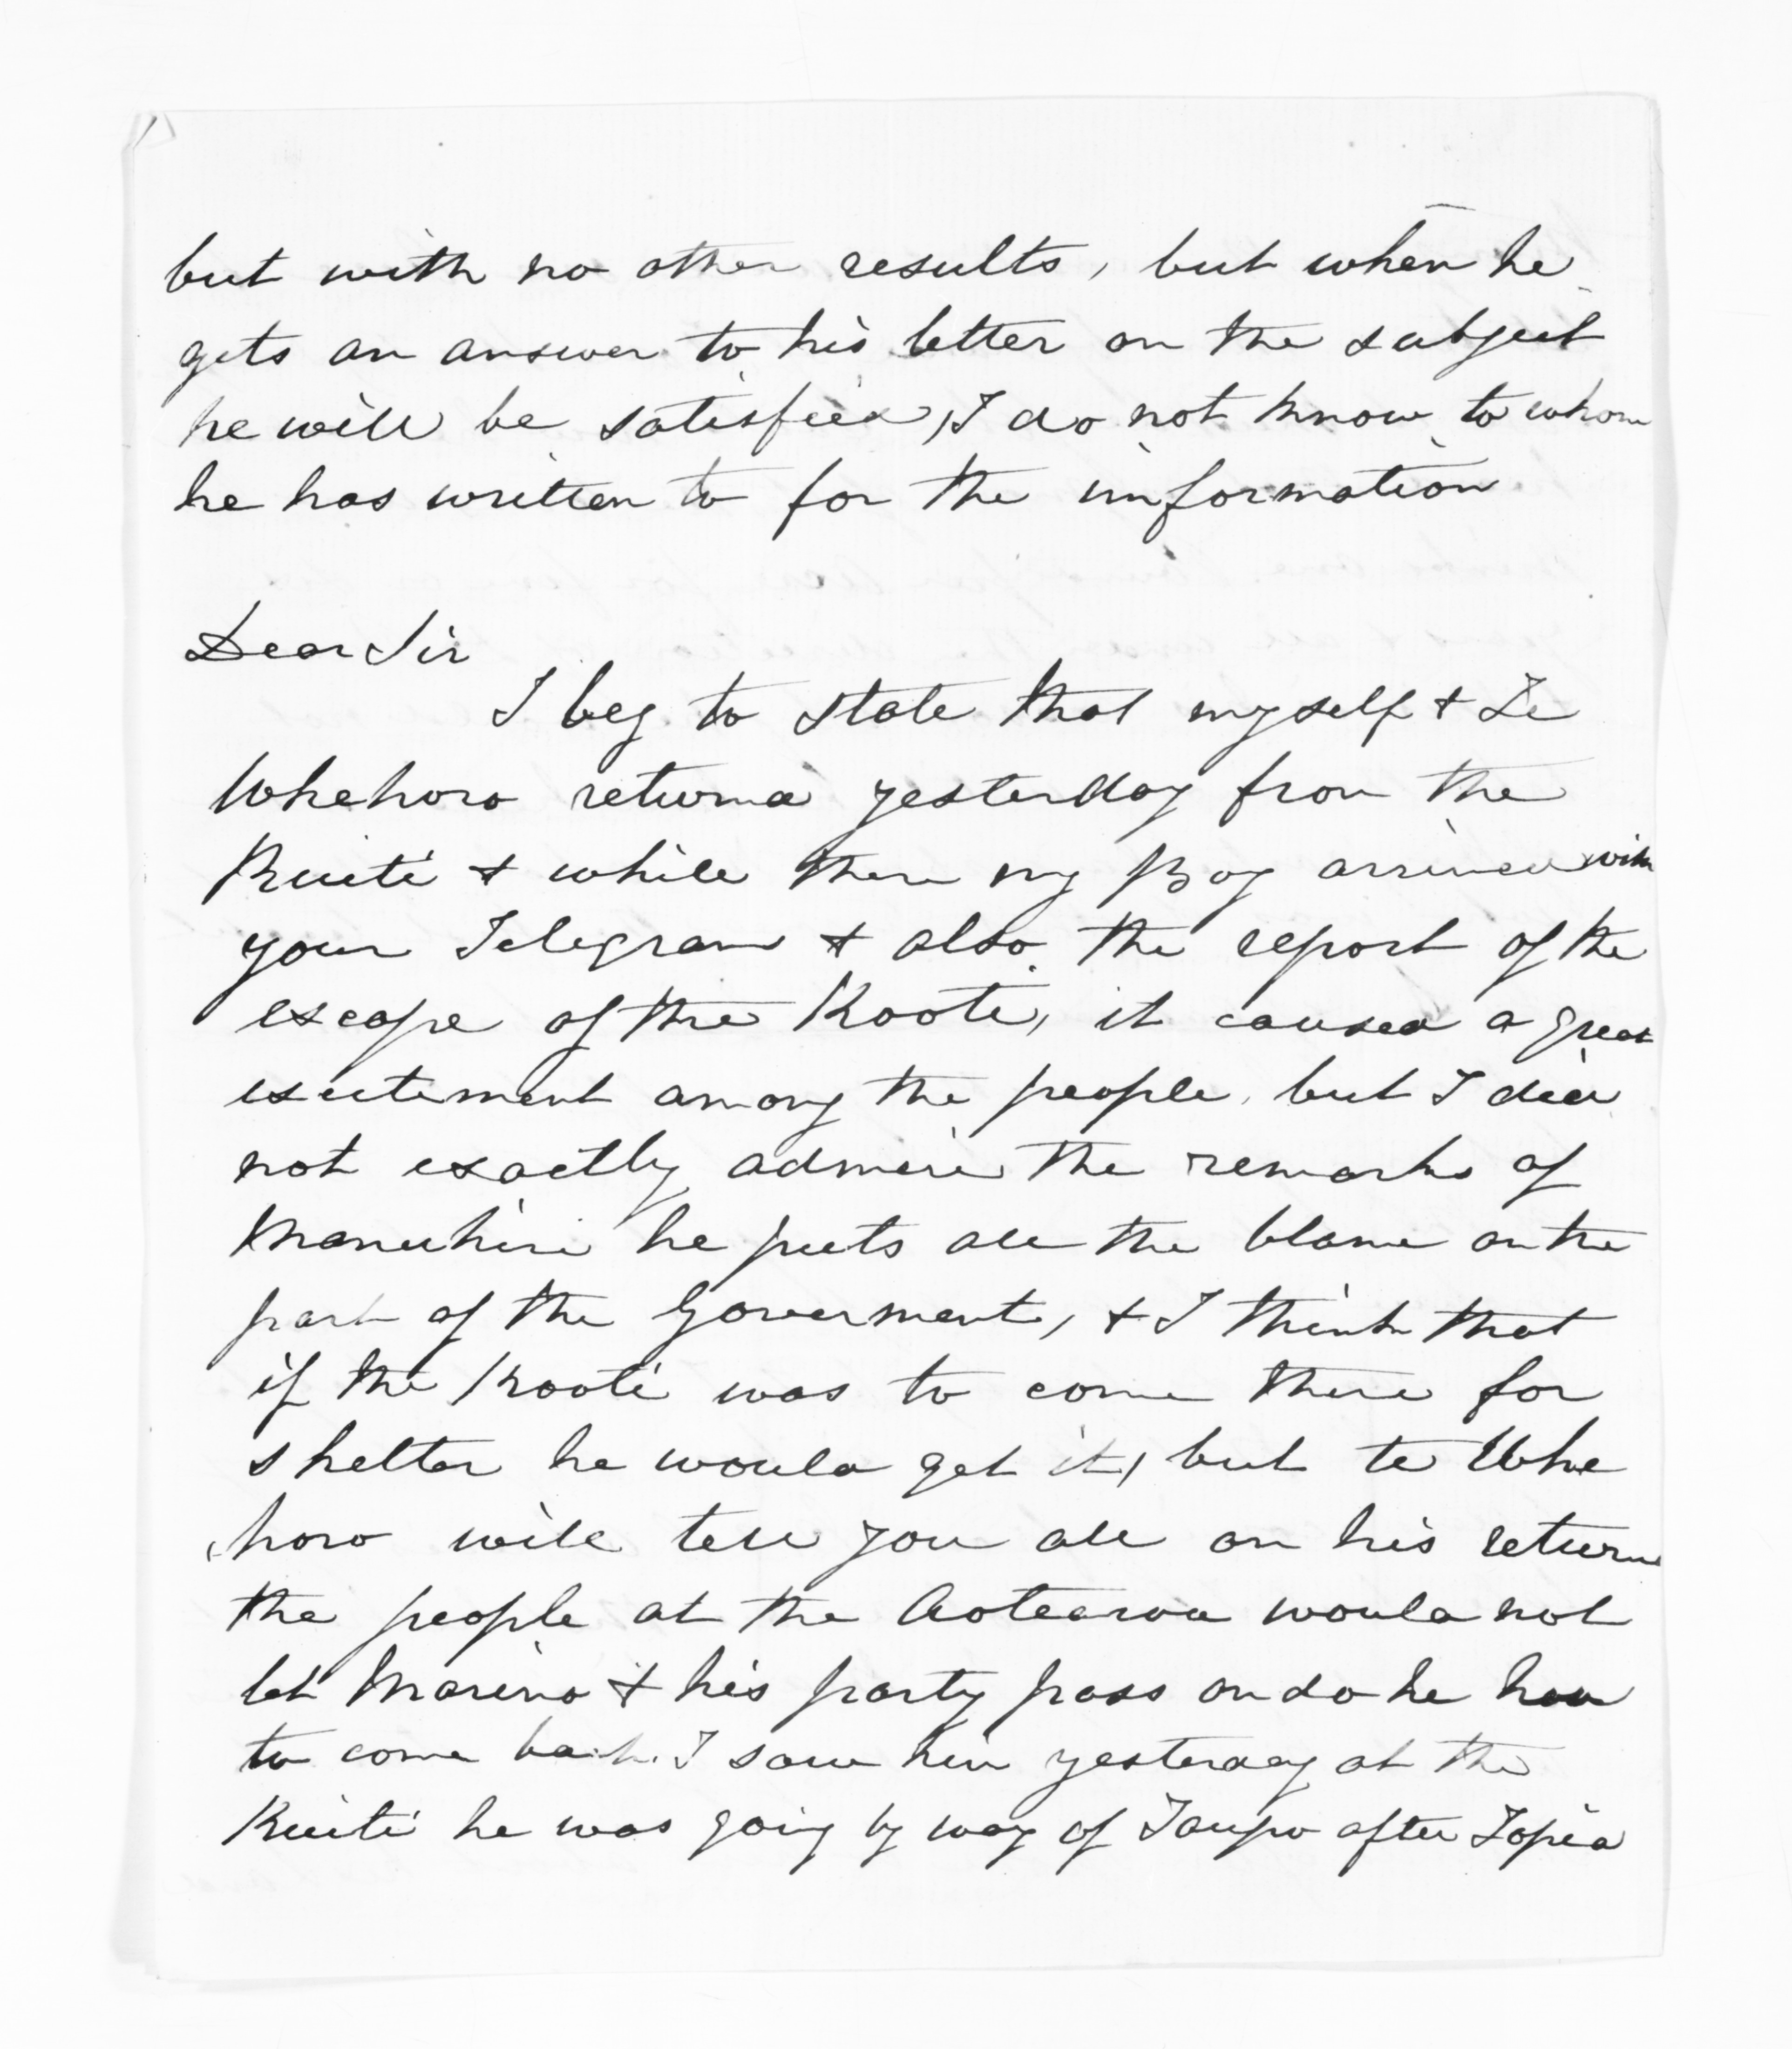 but with no other results, but when he
gets an answer to his letter on the subject
he will be satisfied, I do not know to whom
he has written to for the information
Dear Sir
I beg to state that myself & Te
Whehoro returned yesterday from the
Kuiti & while there my Boy arrived with
your Telegram & also the report of the
escape of the Kooti, it caused a great
excitement among the people, but I did
not exactly admire the remarks of
Manuhiri he puts all the blame on the
part of the Goverment, & I think that
if the Kooti was to come there for
shelter he would get it, but te Whe
horo will tell you all on his return
the people at the Aotearoa would not
let Marino & his party pass on so he had
to come back. I saw him yesterday at the
Kuiti he was going by way of Taupo after Topia